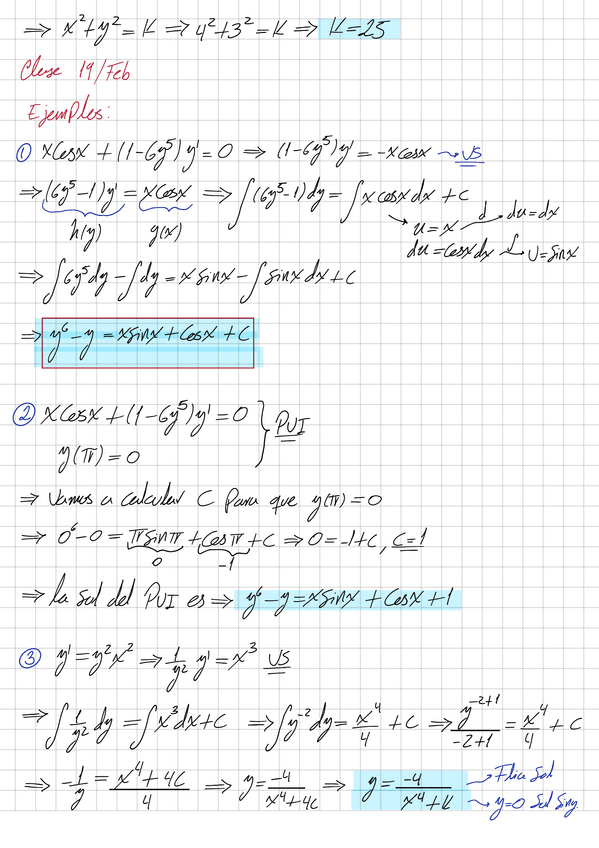 ⇒ x²+y² = K ⇒ 4²+3² = K ⇒ K=25
Clase 19/Feb
Ejemplos:
① xCosx + (1-6y⁵) y' = 0 ⇒ (1-6y⁵)y' = -xcosx → VS
⇒ (6y⁵-1)y' = xCosx ⇒ ∫(6y⁵-1)dy = ∫x cosx dx + C
h(y) g(x) u=x d→ du=dx
du=Cosx dx ∫→ U=Sinx
⇒ ∫6y⁵dy - ∫dy = x Sinx - ∫Sinx dx + C
⇒ y⁶-y = xSinx + Cosx + C
② xCosx + (1-6y⁵)y' = 0
y(π) = 0 } PVI
⇒ Vamos a calcular C Para que y(π) = 0
⇒ 0⁶-0 = πSinπ + Cosπ + C ⇒ 0 = -1+C, C=1
0 -1
⇒ la Sol del PVI es ⇒ y⁶-y = xSinx + Cosx + 1
③ y' = y²x² ⇒ 1/y² y' = x³ VS
⇒ ∫1/y² dy = ∫x³dx + C ⇒ ∫y⁻²dy = x⁴/4 + C ⇒ y⁻²⁺¹/-2+1 = x⁴/4 + C
⇒ -1/y = x⁴+4C/4 ⇒ y = -4/x⁴+4C ⇒ y = -4/x⁴+K
→ Flia Sol
→ y=0 Sol Sing.